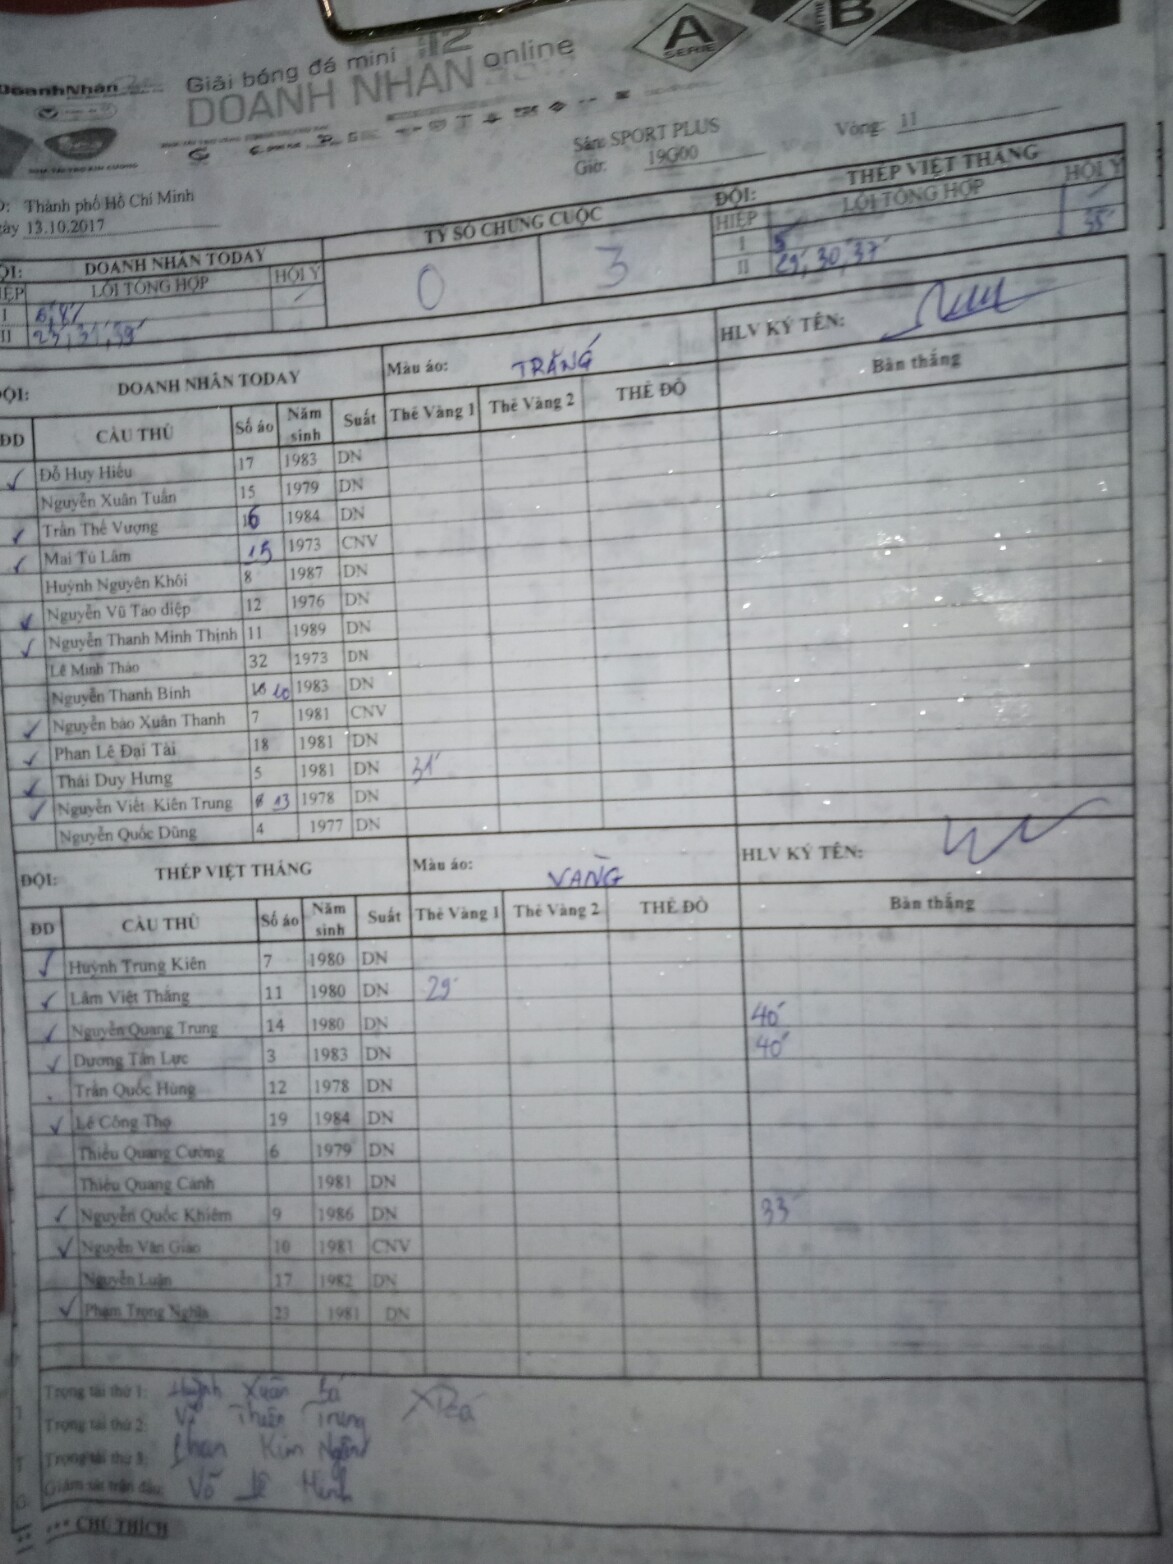 DoanhNhân
Giải bóng đá mini 12
DOANH NHÂN online
A
SERIE
B
Sân: SPORT PLUS
Vòng: 11
Giờ: 19G00
Thành phố Hồ Chí Minh
13.10.2017
DOANH NHÂN TODAY
TỶ SỐ CHUNG CUỘC
ĐỘI: THÉP VIỆT THẮNG
LỖI TỔNG HỢP HỘI Ý
0 3
HIỆP LỖI TỔNG HỢP HỘI Ý
I
I 5'
II 29', 30', 37' 35'
II 23', 31', 39'
ĐỘI: DOANH NHÂN TODAY Màu áo: TRẮNG HLV KÝ TÊN:
ĐD CẦU THỦ Số áo Năm sinh Suất Thẻ Vàng 1 Thẻ Vàng 2 THẺ ĐỎ Bàn thắng
✓ Đỗ Huy Hiếu 17 1983 DN
Nguyễn Xuân Tuấn 15 1979 DN
✓ Trần Thế Vượng 16 1984 DN
✓ Mai Tú Lâm 15 1973 CNV
Huỳnh Nguyên Khôi 8 1987 DN
✓ Nguyễn Vũ Tao điệp 12 1976 DN
✓ Nguyễn Thanh Minh Thịnh 11 1989 DN
Lê Minh Thảo 32 1973 DN
Nguyễn Thanh Bình 10 1983 DN
✓ Nguyễn bảo Xuân Thanh 7 1981 CNV
✓ Phan Lê Đại Tài 18 1981 DN
✓ Thái Duy Hưng 5 1981 DN 31'
✓ Nguyễn Viết Kiên Trung 13 1978 DN
Nguyễn Quốc Dũng 4 1977 DN
ĐỘI: THÉP VIỆT THẮNG Màu áo: VÀNG HLV KÝ TÊN:
ĐD CẦU THỦ Số áo Năm sinh Suất Thẻ Vàng 1 Thẻ Vàng 2 THẺ ĐỎ Bàn thắng
✓ Huỳnh Trung Kiên 7 1980 DN
✓ Lâm Việt Thắng 11 1980 DN 29'
✓ Nguyễn Quang Trung 14 1980 DN 40'
✓ Dương Tấn Lực 3 1983 DN 40'
Trần Quốc Hùng 12 1978 DN
✓ Lê Công Thọ 19 1984 DN
Thiều Quang Cường 6 1979 DN
Thiều Quang Cảnh 1981 DN
✓ Nguyễn Quốc Khiêm 9 1986 DN 33'
✓ Nguyễn Văn Giáo 10 1981 CNV
Nguyễn Luận 17 1982 DN
✓ Phạm Trọng Nghĩa 23 1981 DN
Trọng tài thứ 1: Huỳnh Xuân Bá
Trọng tài thứ 2: Võ Thuần Trung
Trọng tài thứ 3: Phan Kim Ngân
Giám sát trận đấu: Võ Lê Minh
*** CHÚ THÍCH